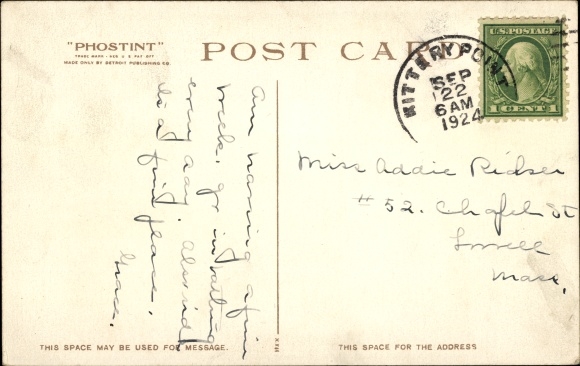 "PHOSTINT"
TRADE MARK - REG U.S. PAT. OFF.
MADE ONLY BY DETROIT PUBLISHING CO.
POST CARD
KITTERY POINT
SEP
22
6 AM
1924
U.S. POSTAGE
1 CENT 1
Am having a fine
week. go in bathing
every day.
is a fine place.
Grace.
Miss Addie Ridser
# 52. Chapel St
Lowell
Mass.
THIS SPACE MAY BE USED FOR MESSAGE.
THIS SPACE FOR THE ADDRESS